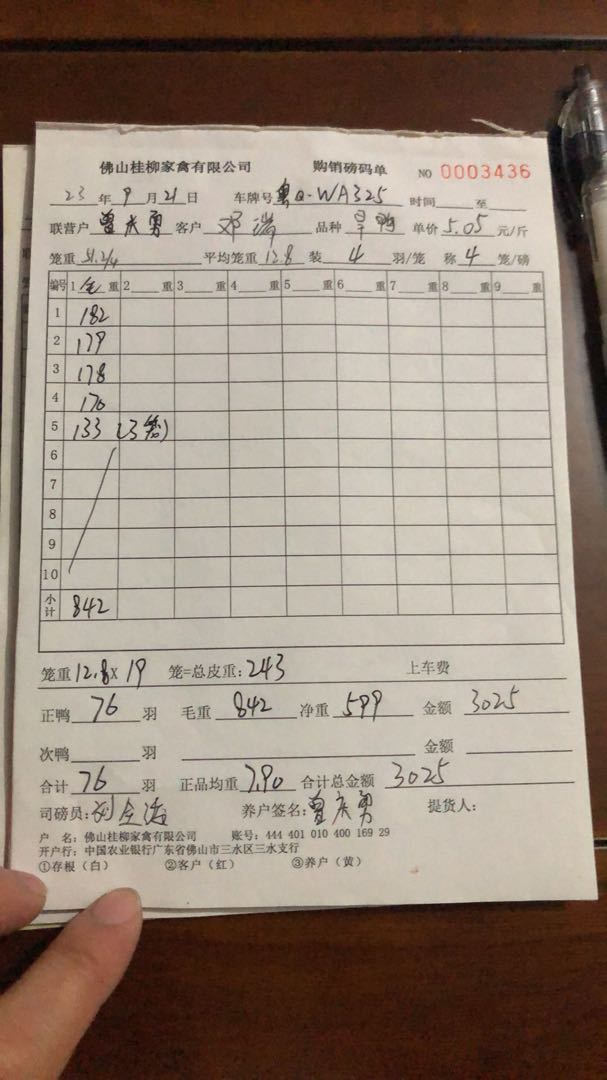 佛山桂柳家禽有限公司 购销磅码单 NO 0003436
23 年 9 月 21 日 车牌号 粤Q-WA325 时间 至
联营户 曾庆勇 客户 邓 品种 旱鸭 单价 5.05 元/斤
笼重 51.2/4 平均笼重 12.8 装 4 羽/笼 称 4 笼/磅
编号 1 重 2 重 3 重 4 重 5 重 6 重 7 重 8 重 9 重
1 182
2 179
3 178
4 170
5 133 (3笼)
6
7
8
9
10
小计 842
笼重 12.8 x 19 笼=总皮重: 243 上车费
正鸭 76 羽 毛重 842 净重 599 金额 3025
次鸭 羽 金额
合计 76 羽 正品均重 7.90 合计总金额 3025
司磅员: 养户签名: 曾庆勇 提货人:
户 名: 佛山桂柳家禽有限公司 账号: 444 401 010 400 169 29
开户行: 中国农业银行广东省佛山市三水区三水支行
①存根(白) ②客户(红) ③养户(黄)